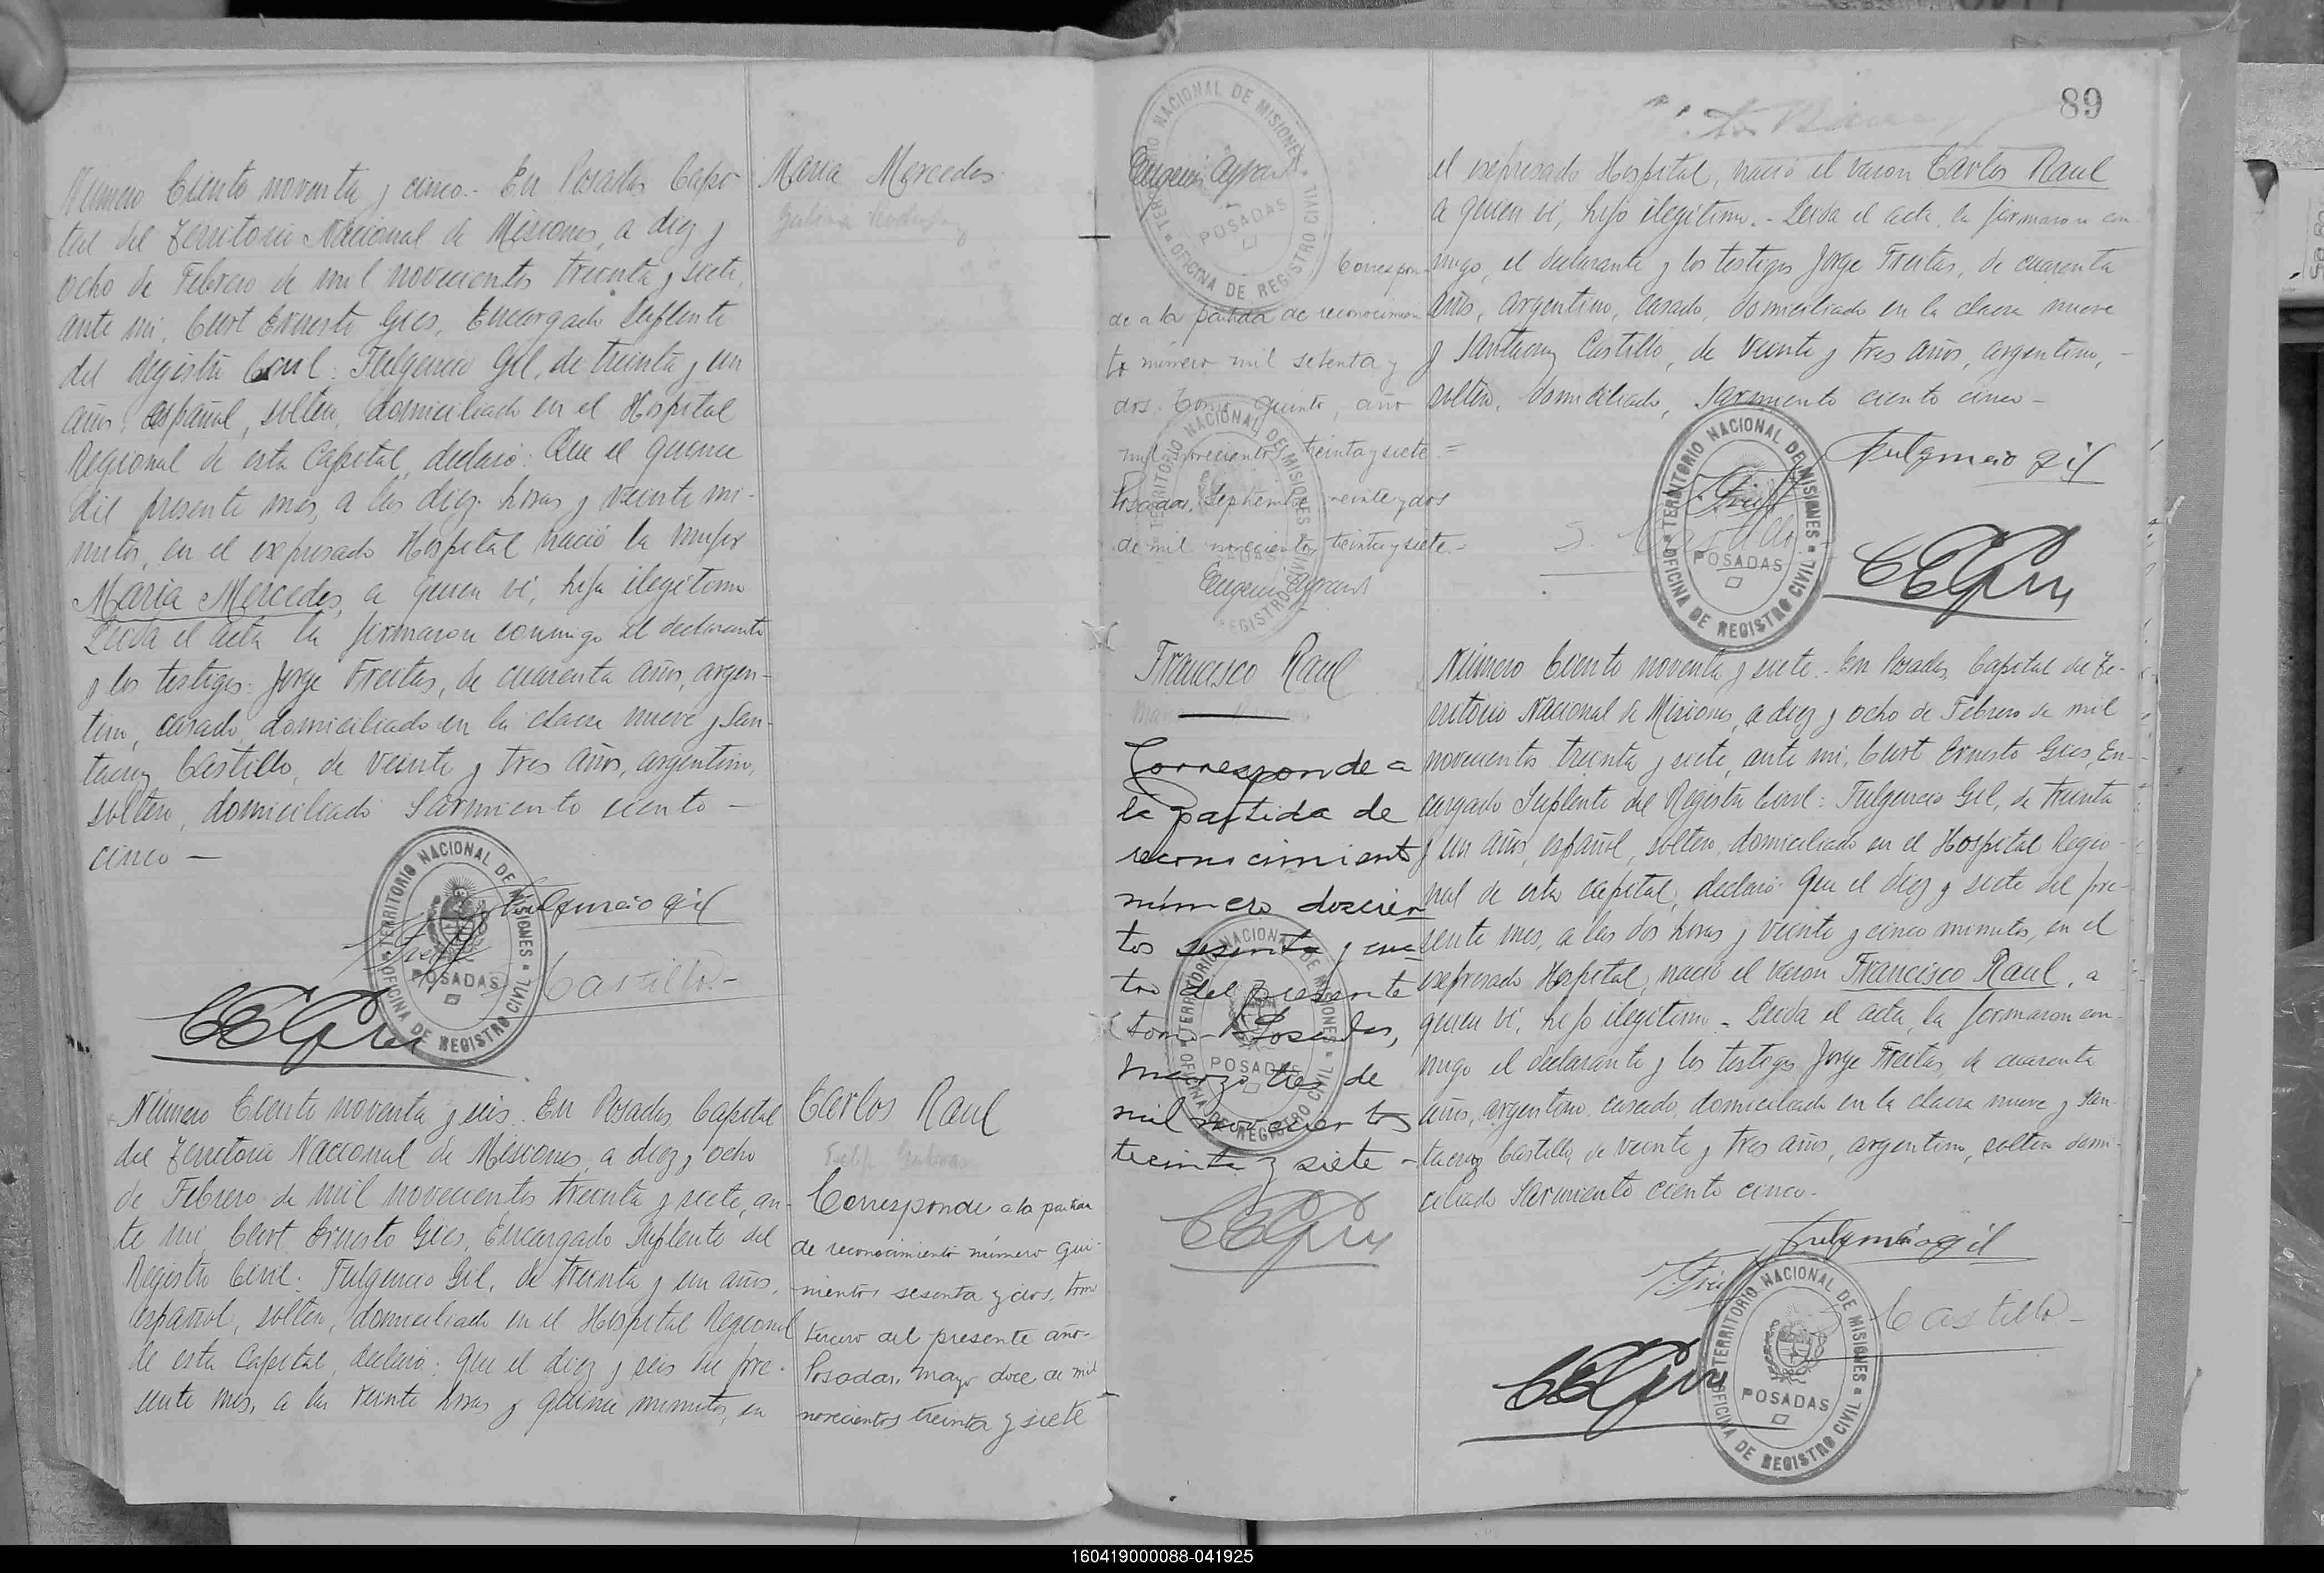 Número Ciento noventa y cinco.- En Posadas Capi-
tal del Territorio Nacional de Misiones, a diez y
ocho de Febrero de mil novecientos treinta y siete,
ante mi, Curt Ernesto Gies, Encargado Suplente
del Registro Civil: Fulgencio Gil, de treinta y un
años, español, soltero, domiciliado en el Hospital
Regional de esta Capital, declaró: Que el quince
del presente mes, a las diez horas y veinte mi-
nutos, en el expresado Hospital nació la mujer
Maria Mercedes, a quien ví, hija ilegítima
Leída el acta la firmaron conmigo el declarante
y los testigos: Jorge Freitas, de cuarenta años, argen-
tino, casado, domiciliado en la chacra nueve y San-
tacruz Castillo, de veinte y tres años, argentino,
soltero, domiciliado Sarmiento ciento -
cinco -
Maria Mercedes
Fulgencio Gil
Castillo
TERRITORIO NACIONAL DE MISIONES
POSADAS
OFICINA DE REGISTRO CIVIL
Número Ciento noventa y seis. En Posadas, Capital
del Territorio Nacional de Misiones, a diez y ocho
de Febrero de mil novecientos treinta y siete, an-
te mi, Curt Ernesto Gies, Encargado Suplente del
Registro Civil: Fulgencio Gil, de treinta y un años,
español, soltero, domiciliado en el Hospital Regional
de esta Capital, declaró: Que el diez y seis del pre-
sente mes, a las veinte horas y quince minutos, en
Carlos Raul
Corresponde a la partida
de reconocimiento número qui-
nientos sesenta y dos, tomo
tercero del presente año.-
Posadas, mayo doce de mil
novecientos treinta y siete
89
TERRITORIO NACIONAL DE MISIONES
POSADAS
OFICINA DE REGISTRO CIVIL
Correspon-
de a la partida de reconocimien
to número mil setenta y
dos. Tomo quinto, año
mil novecientos treinta y siete.=
Posadas, Septiembre veinte y dos
de mil novecientos treinta y siete.=
TERRITORIO NACIONAL DE MISIONES
REGISTRO CIVIL
el expresado Hospital, nació el varon Carlos Raul
a quien ví, hijo ilegítimo.- Leída el acta, la firmaron con-
migo, el declarante y los testigos Jorge Freitas, de cuarenta
años, argentino, casado, domiciliado en la chacra nueve
y Santacruz Castillo, de veinte y tres años, argentino, -
soltero, domiciliado, Sarmiento ciento cinco -
Fulgencio Gil
S. Castillo
TERRITORIO NACIONAL DE MISIONES
POSADAS
OFICINA DE REGISTRO CIVIL
Francisco Raul
Corresponde a
la partida de
reconocimiento
número doscien
tos sesenta y cua
tro del presente
tomo - Posadas,
marzo tres de
mil novecientos
treinta y siete -
TERRITORIO NACIONAL DE MISIONES
POSADAS
OFICINA DE REGISTRO CIVIL
Número Ciento noventa y siete.- En Posadas, Capital del Te-
rritorio Nacional de Misiones, a diez y ocho de Febrero de mil
novecientos treinta y siete, ante mi, Curt Ernesto Gies, En-
cargado Suplente del Registro Civil: Fulgencio Gil, de treinta
y un años, español, soltero, domiciliado en el Hospital Regio-
nal de esta capital, declaró: Que el diez y siete del pre-
sente mes, a las dos horas y veinte y cinco minutos, en el
expresado Hospital, nació el varon Francisco Raul, a
quien ví, hijo ilegítimo - Leída el acta, la firmaron con-
migo el declarante y los testigos Jorge Freitas, de cuarenta
años, argentino, casado, domiciliado en la chacra nueve y San-
tacruz Castillo, de veinte y tres años, argentino, soltero domi-
ciliado Sarmiento ciento cinco.-
Fulgencio Gil
Castillo
TERRITORIO NACIONAL DE MISIONES
POSADAS
OFICINA DE REGISTRO CIVIL
160419000088-041925